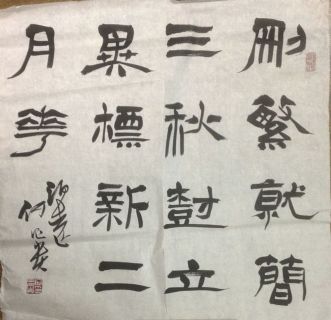 刪繁就簡
三秋樹立
異標新二
月花